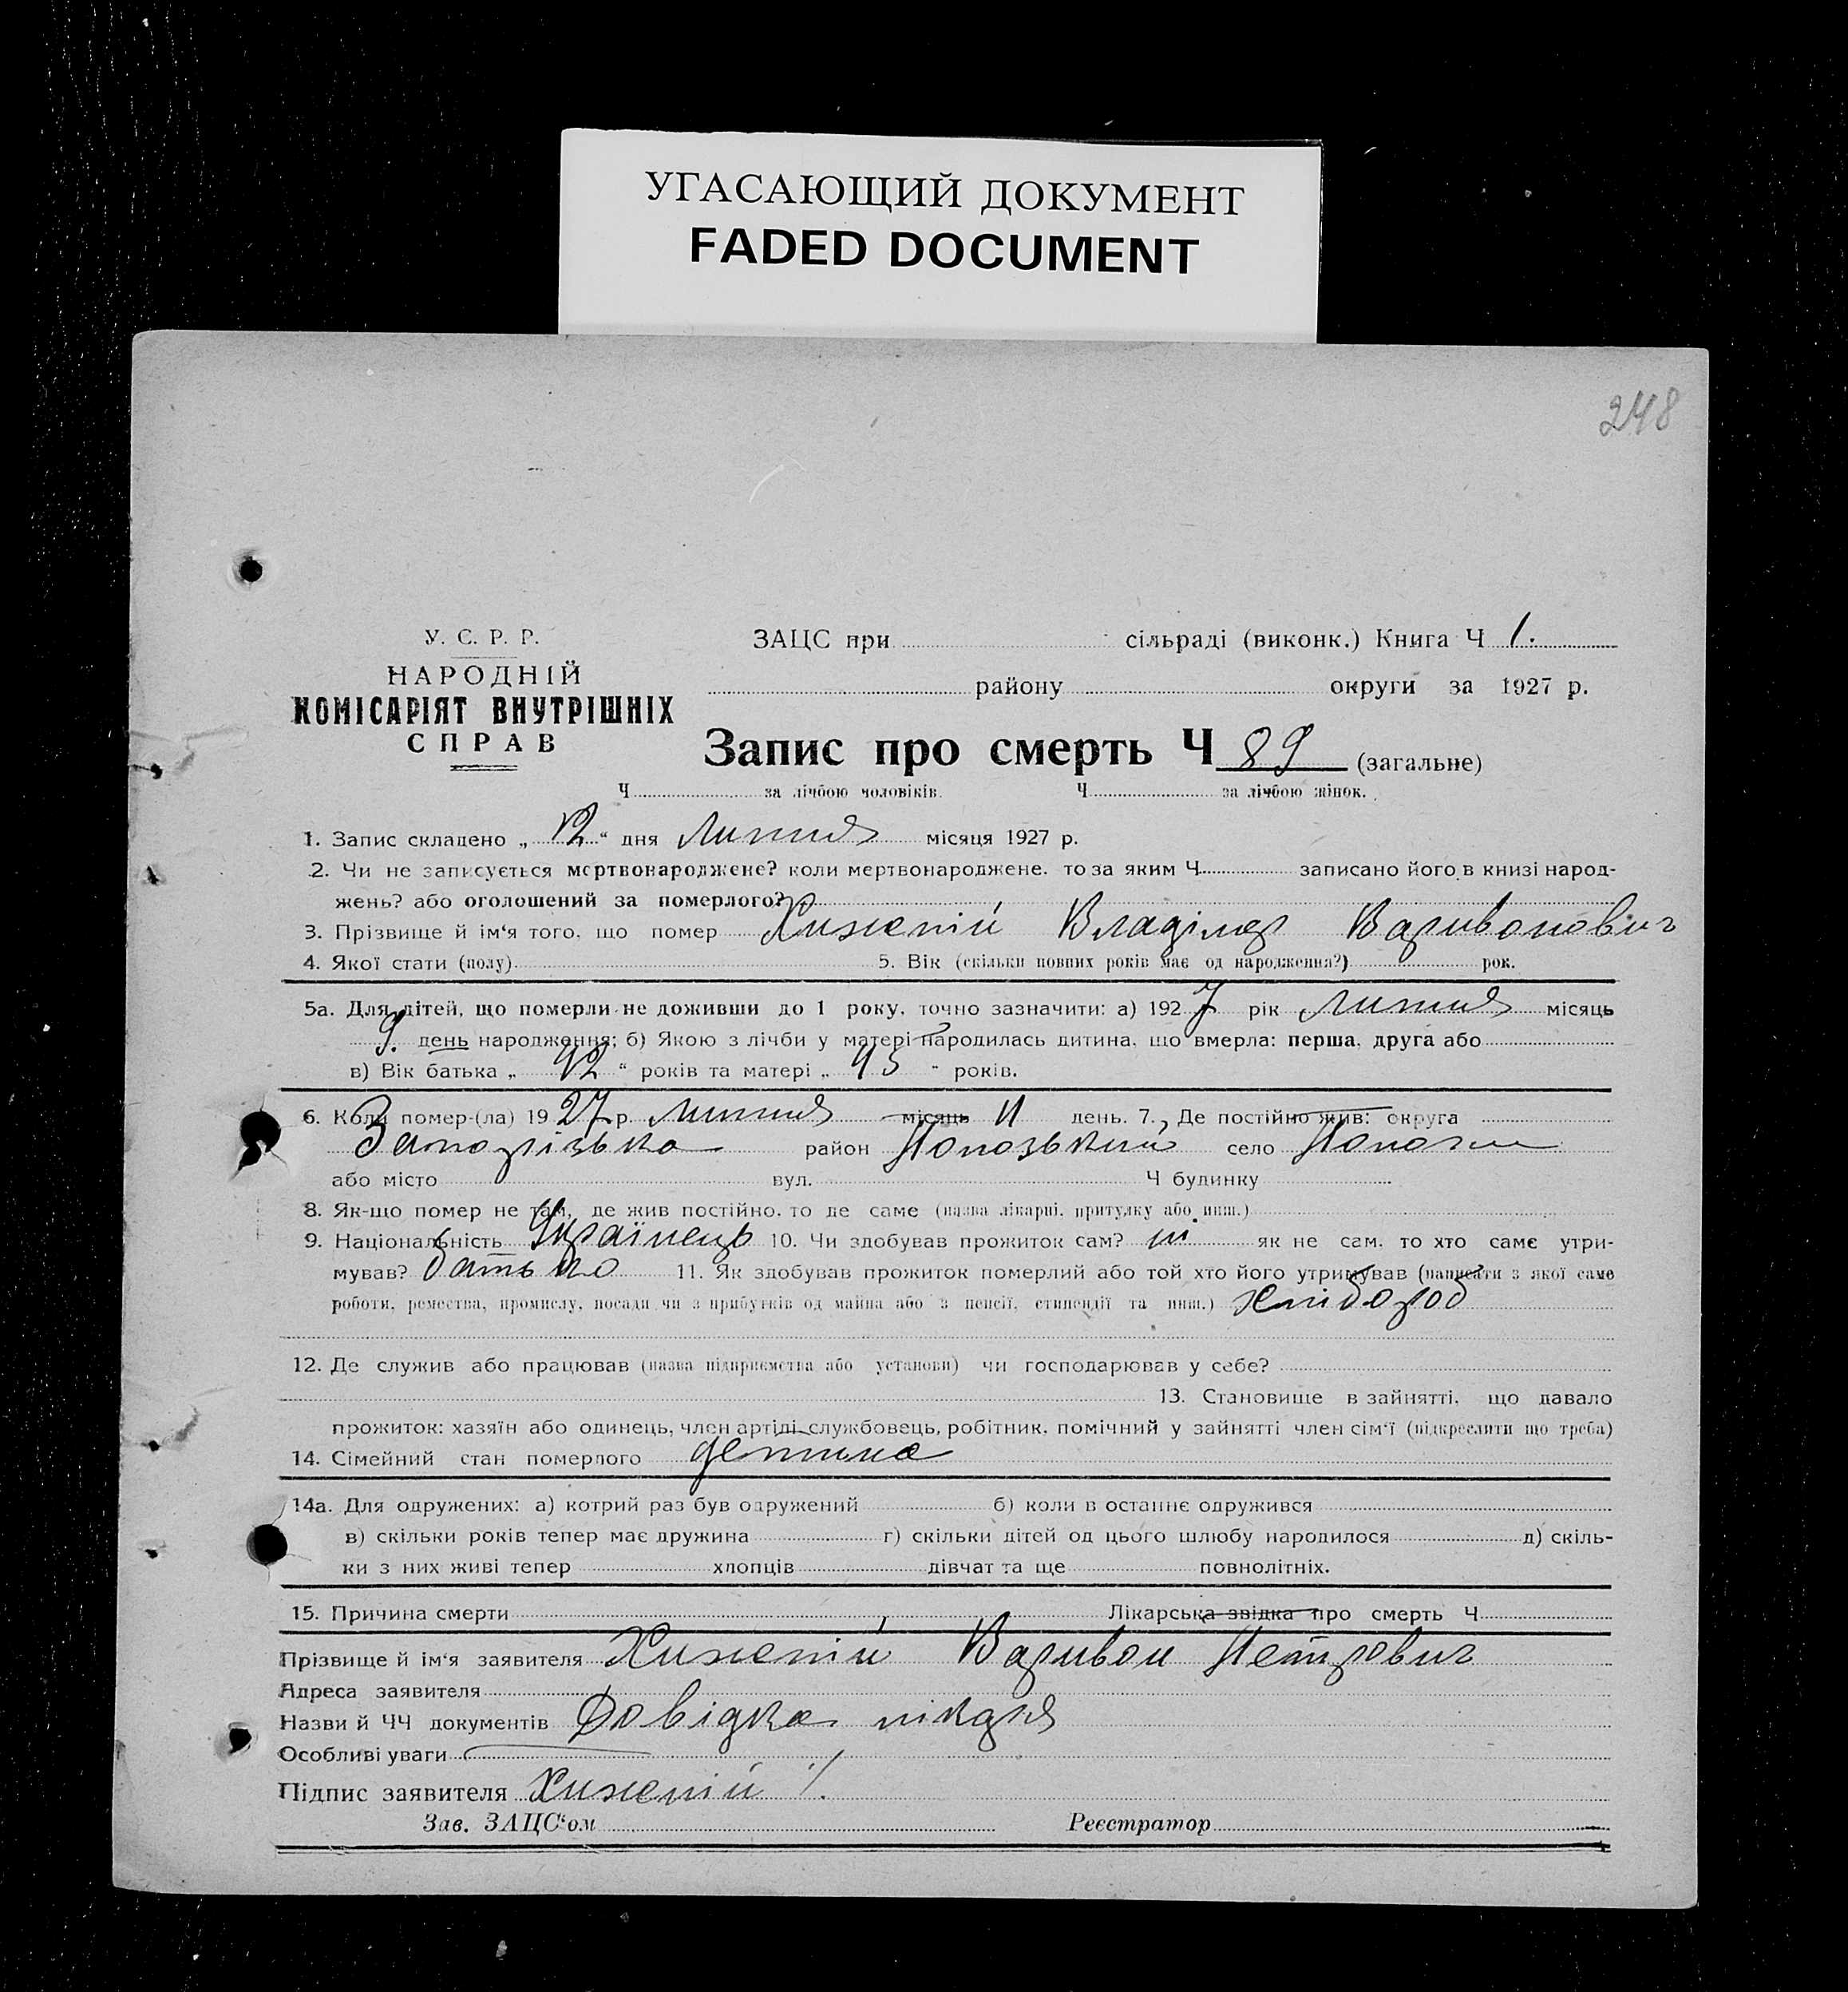 УГАСАЮЩИЙ ДОКУМЕНТ
FADED DOCUMENT
248
У. С. Р. Р.
НАРОДНІЙ
КОМІСАРІЯТ ВНУТРІШНІХ
СПРАВ
ЗАЦС при сільраді (виконк.) Книга Ч 1.
району округи за 1927 р.
Запис про смерть Ч 89 (загальне)
Ч за лічбою чоловіків. Ч за лічбою жінок.
1. Запис складено „ 12 “ дня Липня місяця 1927 р.
2. Чи не записується мертвонароджене? коли мертвонароджене, то за яким Ч записано його в книзі народ-
жень? або оголошений за померлого?
3. Прізвище й ім‘я того, що помер Хижній Владімер Варивонович
4. Якої стати (полу) 5. Вік (скільки повних років має од народження?) рок.
5а. Для дітей, що померли не доживши до 1 року, точно зазначити: а) 1927 рік Липня місяць
9. день народження; б) Якою з лічби у матері народилась дитина, що вмерла: перша, друга або
в) Вік батька „ 42 “ років та матері „ 43 “ років.
6. Коли помер-(ла) 1927 р. Липня місяць 11 день. 7. Де постійно жив: округа
Запорізька район Пологський село Пологи
або місто вул. Ч будинку
8. Як-що помер не там, де жив постійно, то де саме (назва лікарні, притулку або инш.)
9. Національність Українець 10. Чи здобував прожиток сам? ні як не сам, то хто саме утри-
мував? батько 11. Як здобував прожиток померлий або той хто його утримував (написати з якої саме
роботи, ремества, промислу, посади чи з прибутків од майна або з пенсії, стипендії та инш.) хлібороб
12. Де служив або працював (назва підприємства або установи) чи господарював у себе?
13. Становище в зайнятті, що давало
прожиток: хазяїн або одинець, член артілі, службовець, робітник, помічний у зайнятті член сім‘ї (підкреслити що треба)
14. Сімейний стан померлого детина
14а. Для одружених: а) котрий раз був одружений б) коли в останнє одружився
в) скільки років тепер має дружина г) скільки дітей од цього шлюбу народилося д) скіль-
ки з них живі тепер хлопців дівчат та ще повнолітніх.
15. Причина смерти Лікарська звідка про смерть Ч
Прізвище й ім‘я заявителя Хижній Варивон Петрович
Адреса заявителя
Назви й ЧЧ документів Довідка лікаря
Особливі уваги
Підпис заявителя Хижній
Зав. ЗАЦС‘ом Реєстратор